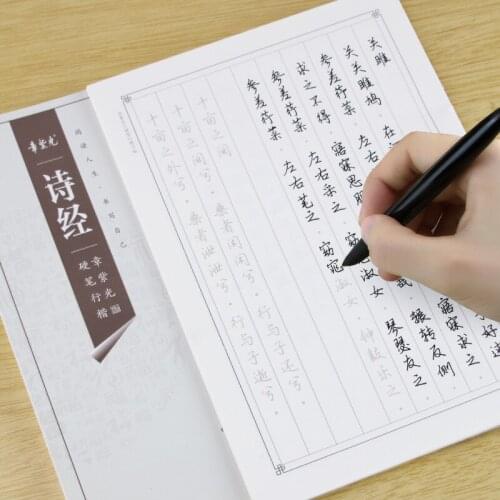 关雎
关关雎鸠 在
参差荇菜 左右 寤寐求之
求之不得 寤寐思服 辗转反侧
参差荇菜 左右采之 窈窕淑女 琴瑟友之
参差荇菜 左右芼之 窈窕淑女 钟鼓乐之
十亩之间
十亩之间兮 桑者闲闲兮 行与子还兮
十亩之外兮 桑者泄泄兮 行与子逝兮
阅读人生，书写自己
诗经
章紫光
硬笔行楷